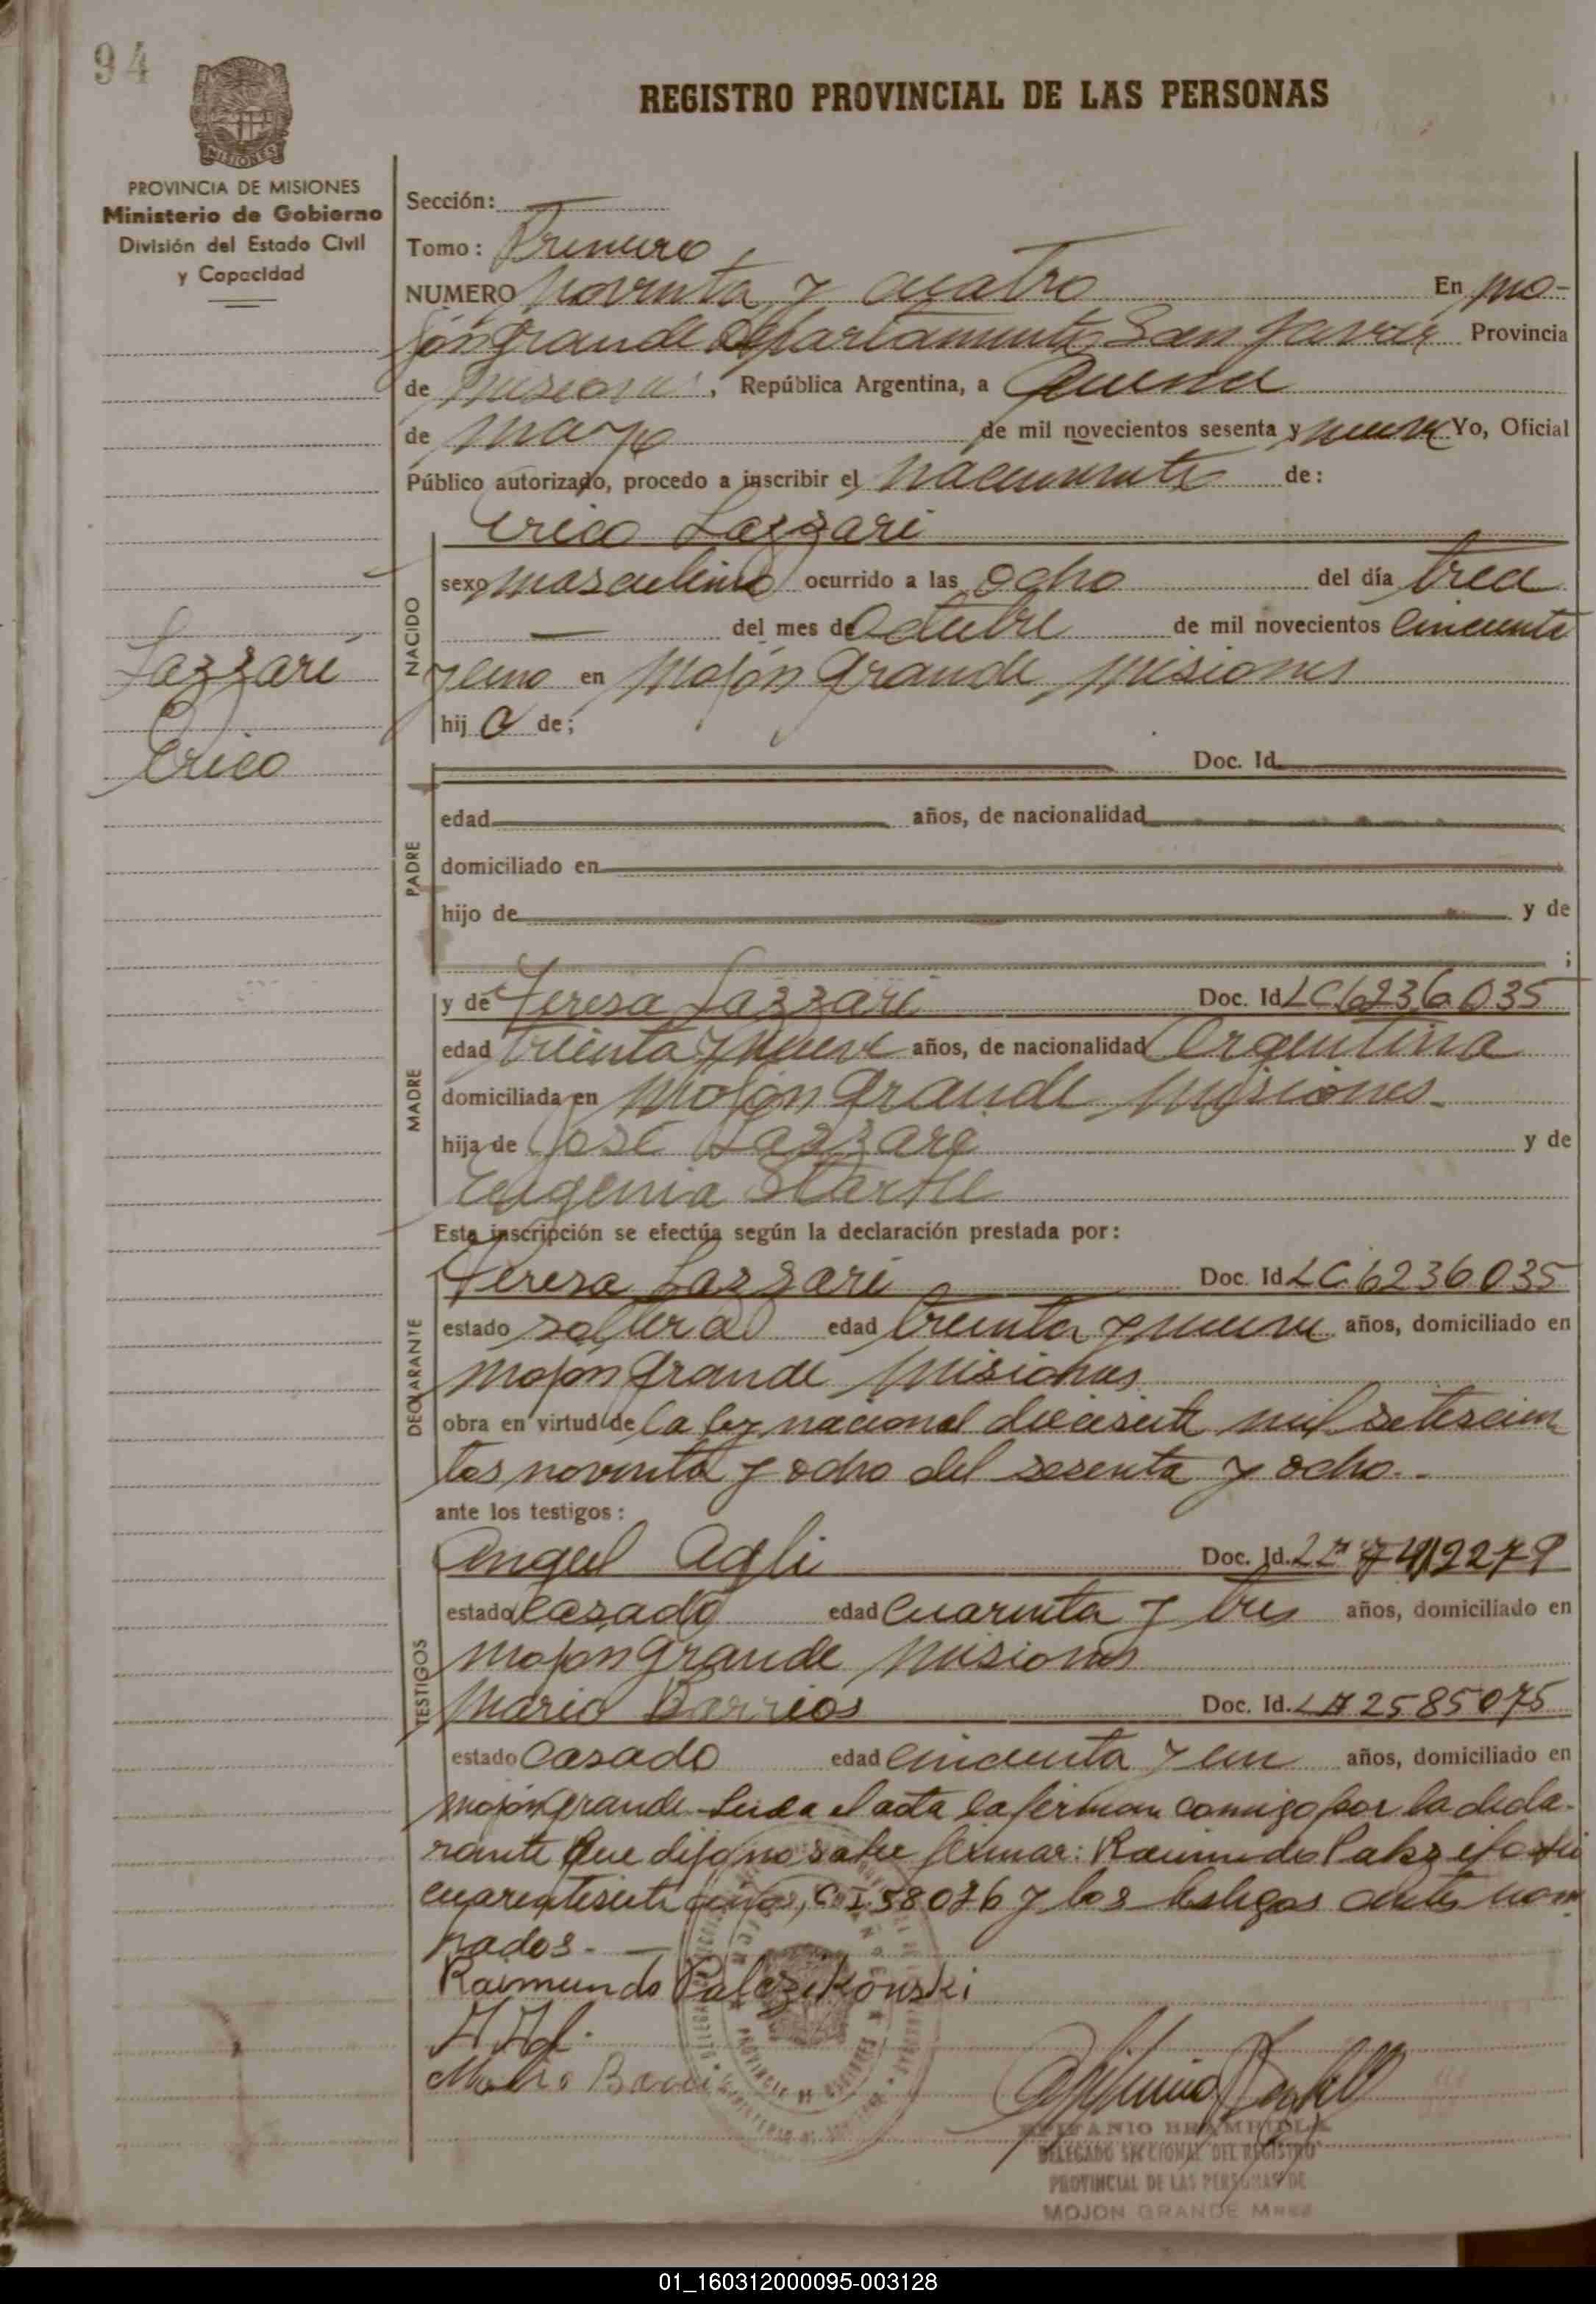 94
MISIONES
PROVINCIA DE MISIONES
Ministerio de Gobierno
División del Estado Civil
y Capacidad
REGISTRO PROVINCIAL DE LAS PERSONAS
Sección:
Tomo: Primero
NUMERO noventa y cuatro En Mo-
jón grande departamento San Javier Provincia
de Misiones, República Argentina, a quince
de mayo de mil novecientos sesenta y nueve Yo, Oficial
Público autorizado, procedo a inscribir el nacimiento de:
Erico Lazzari
NACIDO
sexo masculino ocurrido a las ocho del día trece
del mes de Octubre de mil novecientos cincuenta
y uno en Mojón grande Misiones
hij o de;
Lazzari
Erico
PADRE
Doc. Id.
edad años, de nacionalidad
domiciliado en
hijo de y de
;
MADRE
y de Teresa Lazzari Doc. Id LC 6236035
edad treinta y nueve años, de nacionalidad Argentina
domiciliada en Mojón grande Misiones
hija de José Lazzari y de
Eugenia
Esta inscripción se efectúa según la declaración prestada por:
DECLARANTE
Teresa Lazzari Doc. Id LC 6236035
estado soltera edad treinta y nueve años, domiciliado en
Mojon grande Misiones
obra en virtud de la ley nacional diecisiete mil setescien
tos noventa y ocho del sesenta y ocho.-
ante los testigos:
TESTIGOS
Angel Agli Doc. Id.
estado casado edad cuarenta y tres años, domiciliado en
Mojón grande Misiones
Mario Barrios Doc. Id. 2585075
estado casado edad cincuenta y un años, domiciliado en
Mojón grande. Leida el acta la firman comigo por la decla-
rante que dijo no saber firmar: Raimundo
cuarentisiete años, CI 58076 y los testigos antes nom
nados.-
Raimundo Palczikowski
Mario
EPIFANIO BRAMBILLA
DELEGADO SECCIONAL DEL REGISTRO
PROVINCIAL DE LAS PERSONAS DE
MOJON GRANDE Mnes
01_160312000095-003128